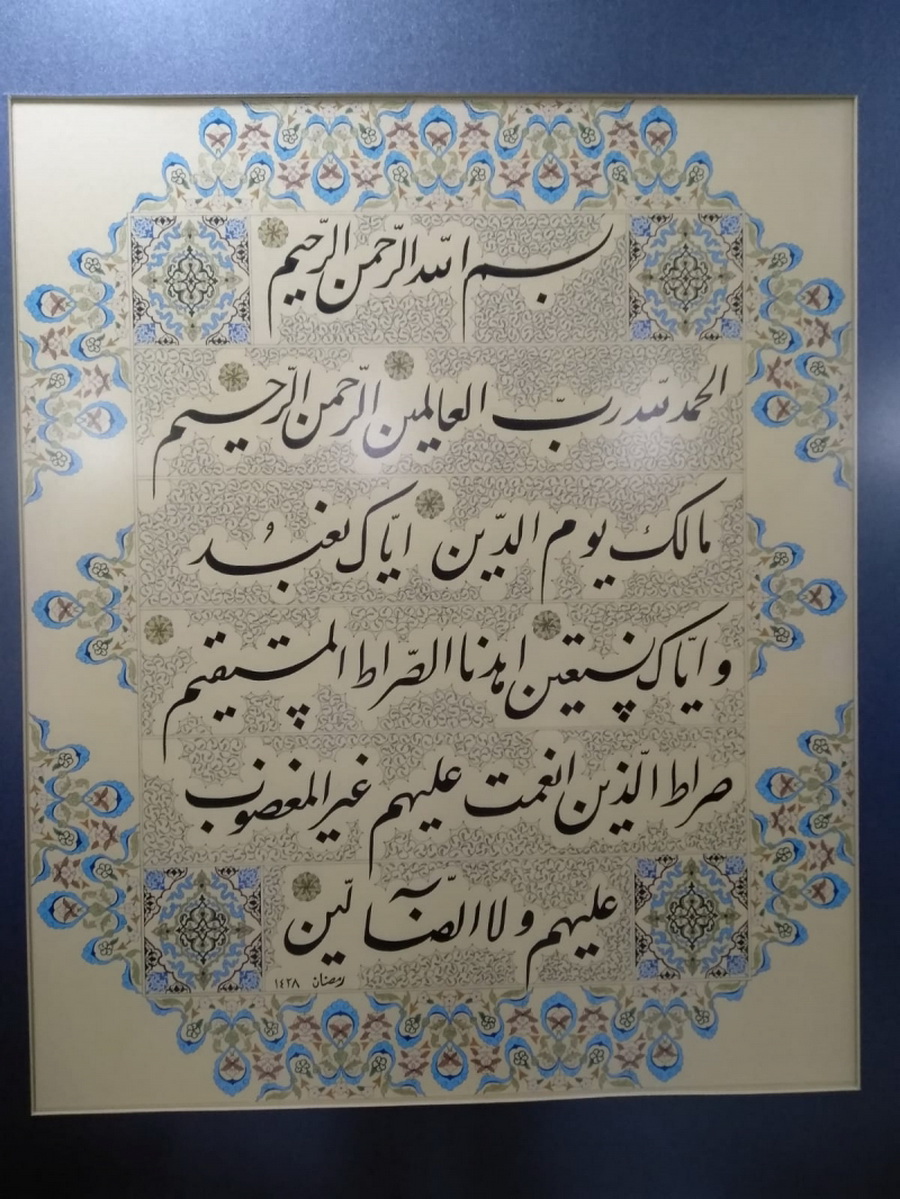 بسم الله الرّحمن الرّحیم
الحمد لله ربّ العالمین الرّحمن الرّحیم
مالک یوم الدّین ایّاک نعبدُ
و ایّاک نستعین اهدنا الصّراط المستقیم
صراط الّذین انعمت علیهم غیر المغضوب
علیهم و لا الضّآلّین
رمضان ١٤٢٨